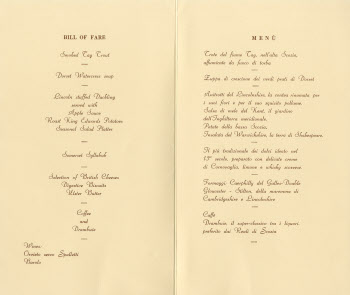 BILL OF FARE
Smoked Tay Trout
Dorset Watercress soup
Lincoln stuffed Duckling
served with
Apple Sauce
Roast King Edwards Potatoes
Seasonal Salad Platter
Somerset Syllabub
Selection of British Cheeses
Digestive Biscuits
Water Butter
Coffee
and
Drambuie
Wines:
Orvieto secco
Barolo
MENÙ
Trota del fiume Tay, nell'alta Scozia,
affumicata da fuoco di torba
Zuppa di crescione dei verdi prati di Dorset
Anitrotti del Lincolnshire, la contea rinomata per
i suoi fiori e per il suo squisito pollame.
Salsa di mele del Kent, il giardino
dell'Inghilterra meridionale.
Patate della bassa Scozia.
Insalata del Warwickshire, la terra di Shakespeare.
Il più tradizionale dei dolci ideato nel
17° secolo, preparato con delicata crema
di Cornovaglia, limone e whisky scozzese
Formaggi: Caerphilly del Galles-Double
Gloucester - Stilton, della maremma di
Cambridgeshire e Lincolnshire
Caffè
Drambuie, il super-classico tra i liquori
preferito dai Reali di Scozia